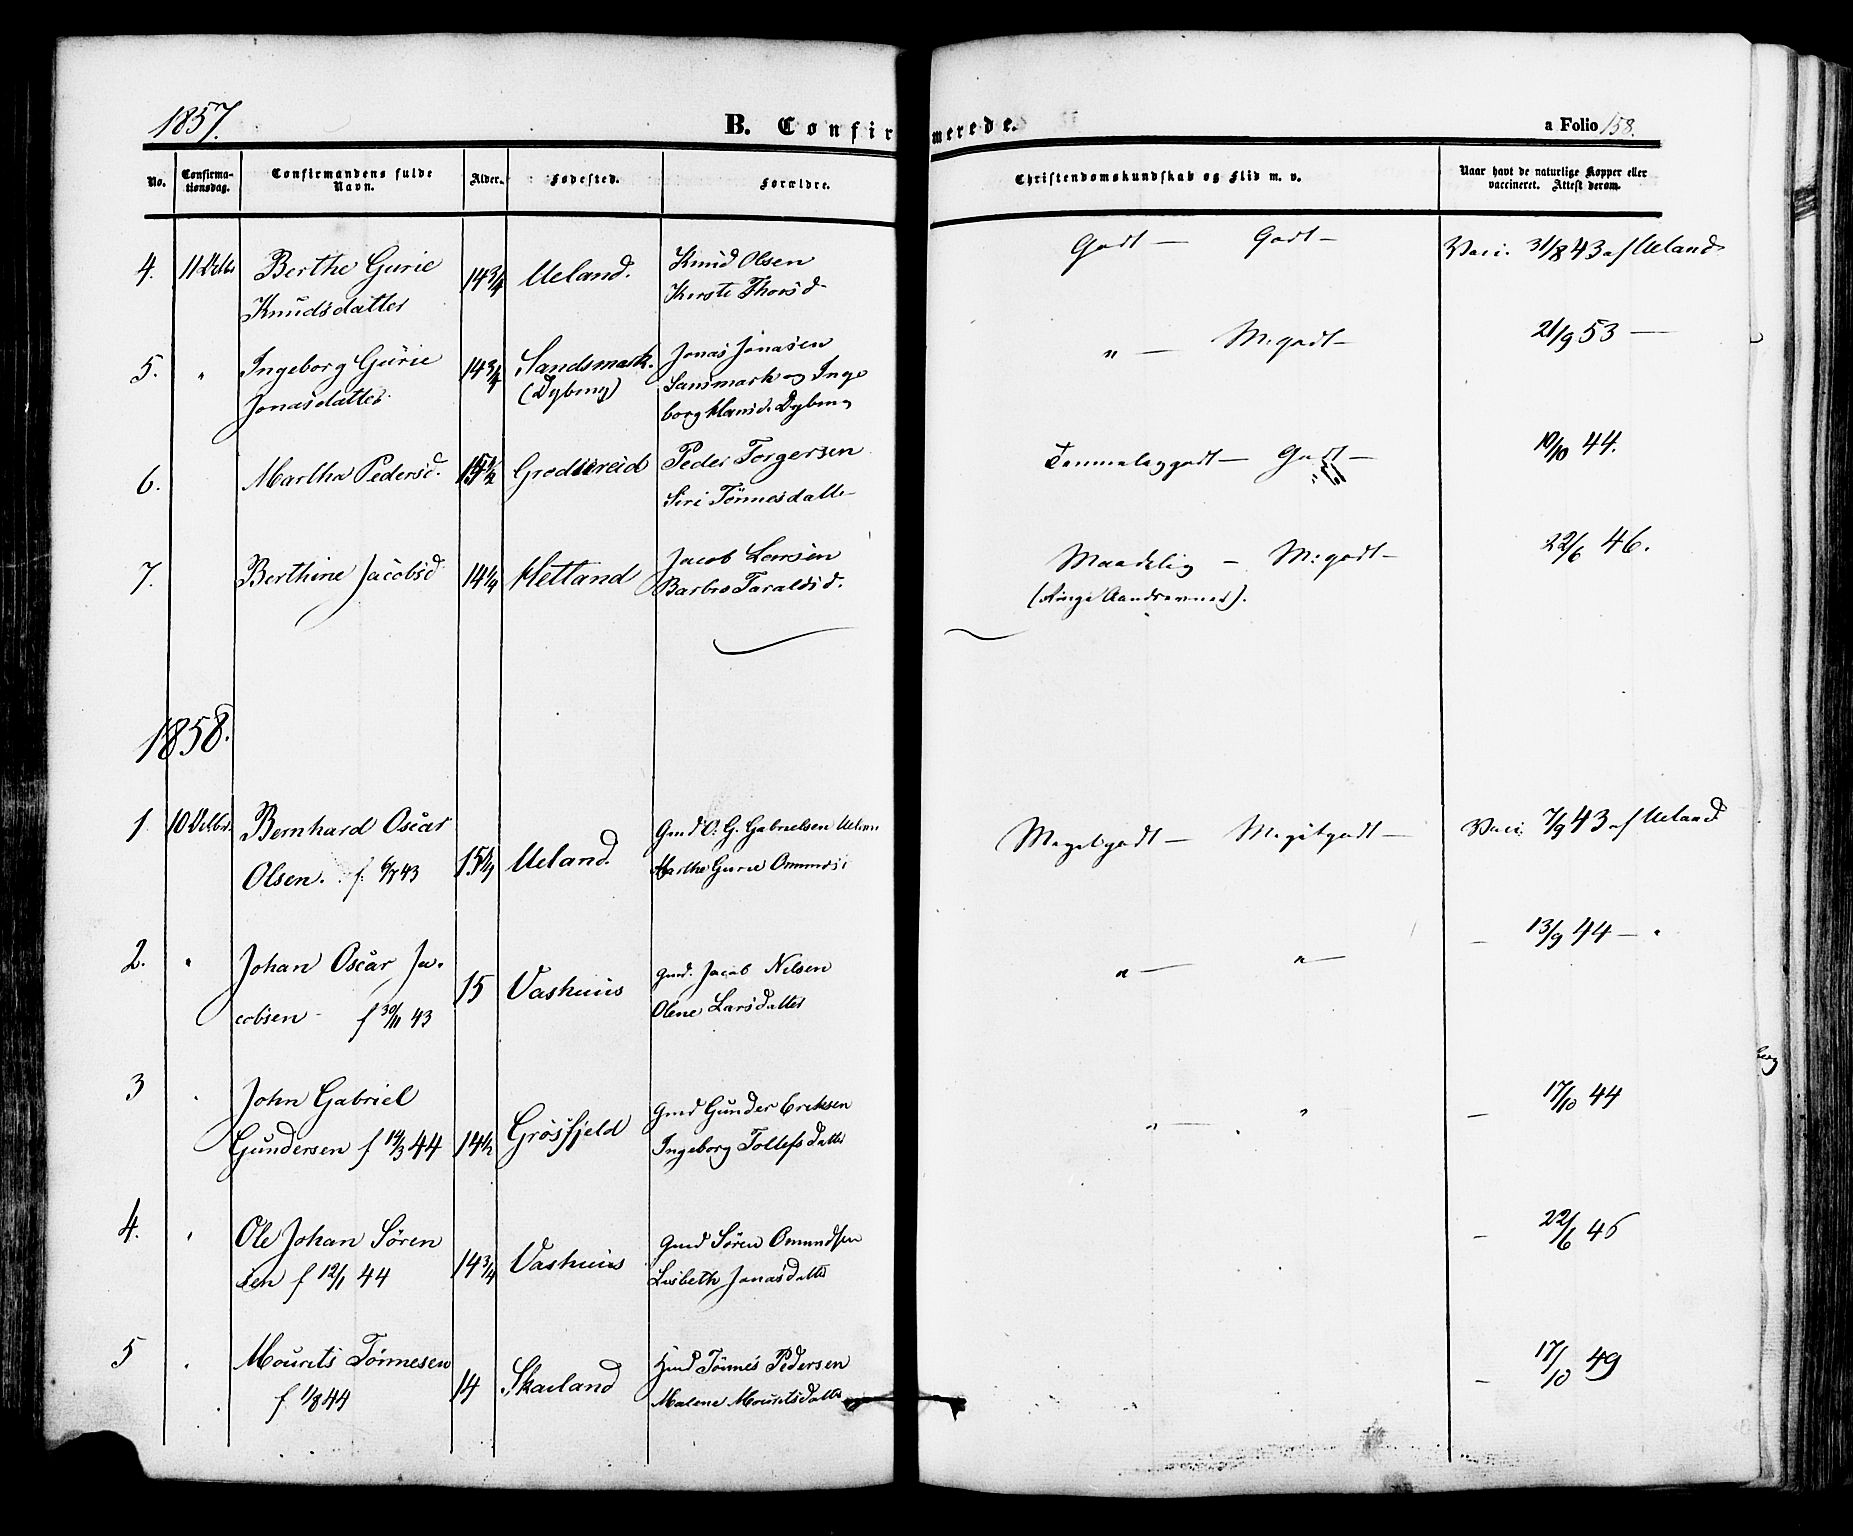 1857.
B. Confirmerede.
a Folio 158.
No.
Confirmationsdag.
Confirmandens fulde Navn.
Alder.
Fødested.
Forældre.
Christendomskundskab og Flid m. v.
Naar havt de naturlige Kopper eller vaccineret. Attest derom.
4. 11 Octbr Berthe Gurie 14 3/4 Ueland. Knud Olsen Godt — Godt — Vacc. 31/8 43 af Ueland
Knudsdatter Kirste Thorsd
5. " Ingeborg Gurie 14 3/4 Sandsmark. Jonas Jonasen " — M. godt — 21/9 53 —
Jonasdatter (Dybing) Sansmark og Inge
borg Hansd. Dybing
6. Martha Pedersd. 15 1/2 Grødtereid Peder Torgersen Temmelig godt — Godt — 10/10 44.
Siri Tönnesdatter
7. Berthine Jacobsd 14 1/4 Hetland Jacob Larsen Maadelig — M: godt — 22/6 46.
Barbro Taraldsd. (Ringe Aandsevner).
1858.
1 10 Octbr. Bernhard Oscar 15 1/4 Ueland. Gmd O. G. Gabrielsen Ueland Megetgodt — Megetgodt — Vacc. 7/9 43 af Ueland
Olsen. f. 6/7 43 Marthe Gurie Omundsd
2. " Johan Oscar Ja- 15 Vashuus Gmd. Jacob Nilsen " — " — — 13/9 44 — "
cobsen f 30/11 43 Olene Larsdatter
3 " John Gabriel 14 1/2 Grösfjeld Gmd Gunder Eriksen " — " — 17/10 44
Gundersen f 14/3 44 Ingeborg Tollefsdatter
4. " Ole Johan Sören 14 3/4 Vashuus Gmd Sören Omundsen — 22/6 46
sen f 12/1 44 Lisbeth Jonasdatter
5 " Mourits Tönnesen 14 Skailand Gmd Tönnes Pedersen — 17/10 49
f 1/8 44 Malene Mouritsdatter